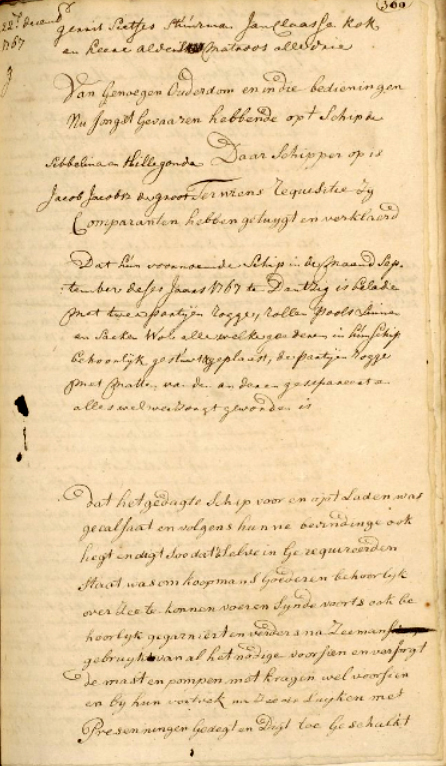 300
22e decemb
1767
gerrit Pietses Stuurman Jan Claasse kok
en keere alders Matroos alle drie
Van Genoegen Ouderdom en in die bedieningen
Nu Jongst Gevaaren hebbende opt Schip de
Sibbelina en Hillegonda Daar Schipper op is
Jacob Jacobs de groot Ter wiens requisitie Zy
Comparanten hebben getuygt en verklaerd
Dat hun voornoemde Schip in de Maand Sep-
tember deses Jaars 1767 te Dantzig is belade
met twee partijen rogge, rollen Pools Linne
en Sacken Wol alle welke goederen in hun schip
behoorlijk gestuwt geplaast, de partijen rogge
met matten van den anderen gesepareert en
alles wel versorgt geworden is
dat het gedagte Schip voor en opt Laden was
gecalfaat en volgens hunne bevindinge ook
hegt en digt Soo dat t selve in Gerequireerden
Staat was om koopmans Goederen behoorlijk
over Zee te konnen voeren Synde voorts ook be
hoorlijk gegarniert en verders na Zeemans
gebruyk van al het nodige voorsien en versorgt
de mast en pompen met kragen wel voorsien
en by hun vertrek na Zee de Luyken met
Presenningen Gelegt en Digt toe Geschalkt